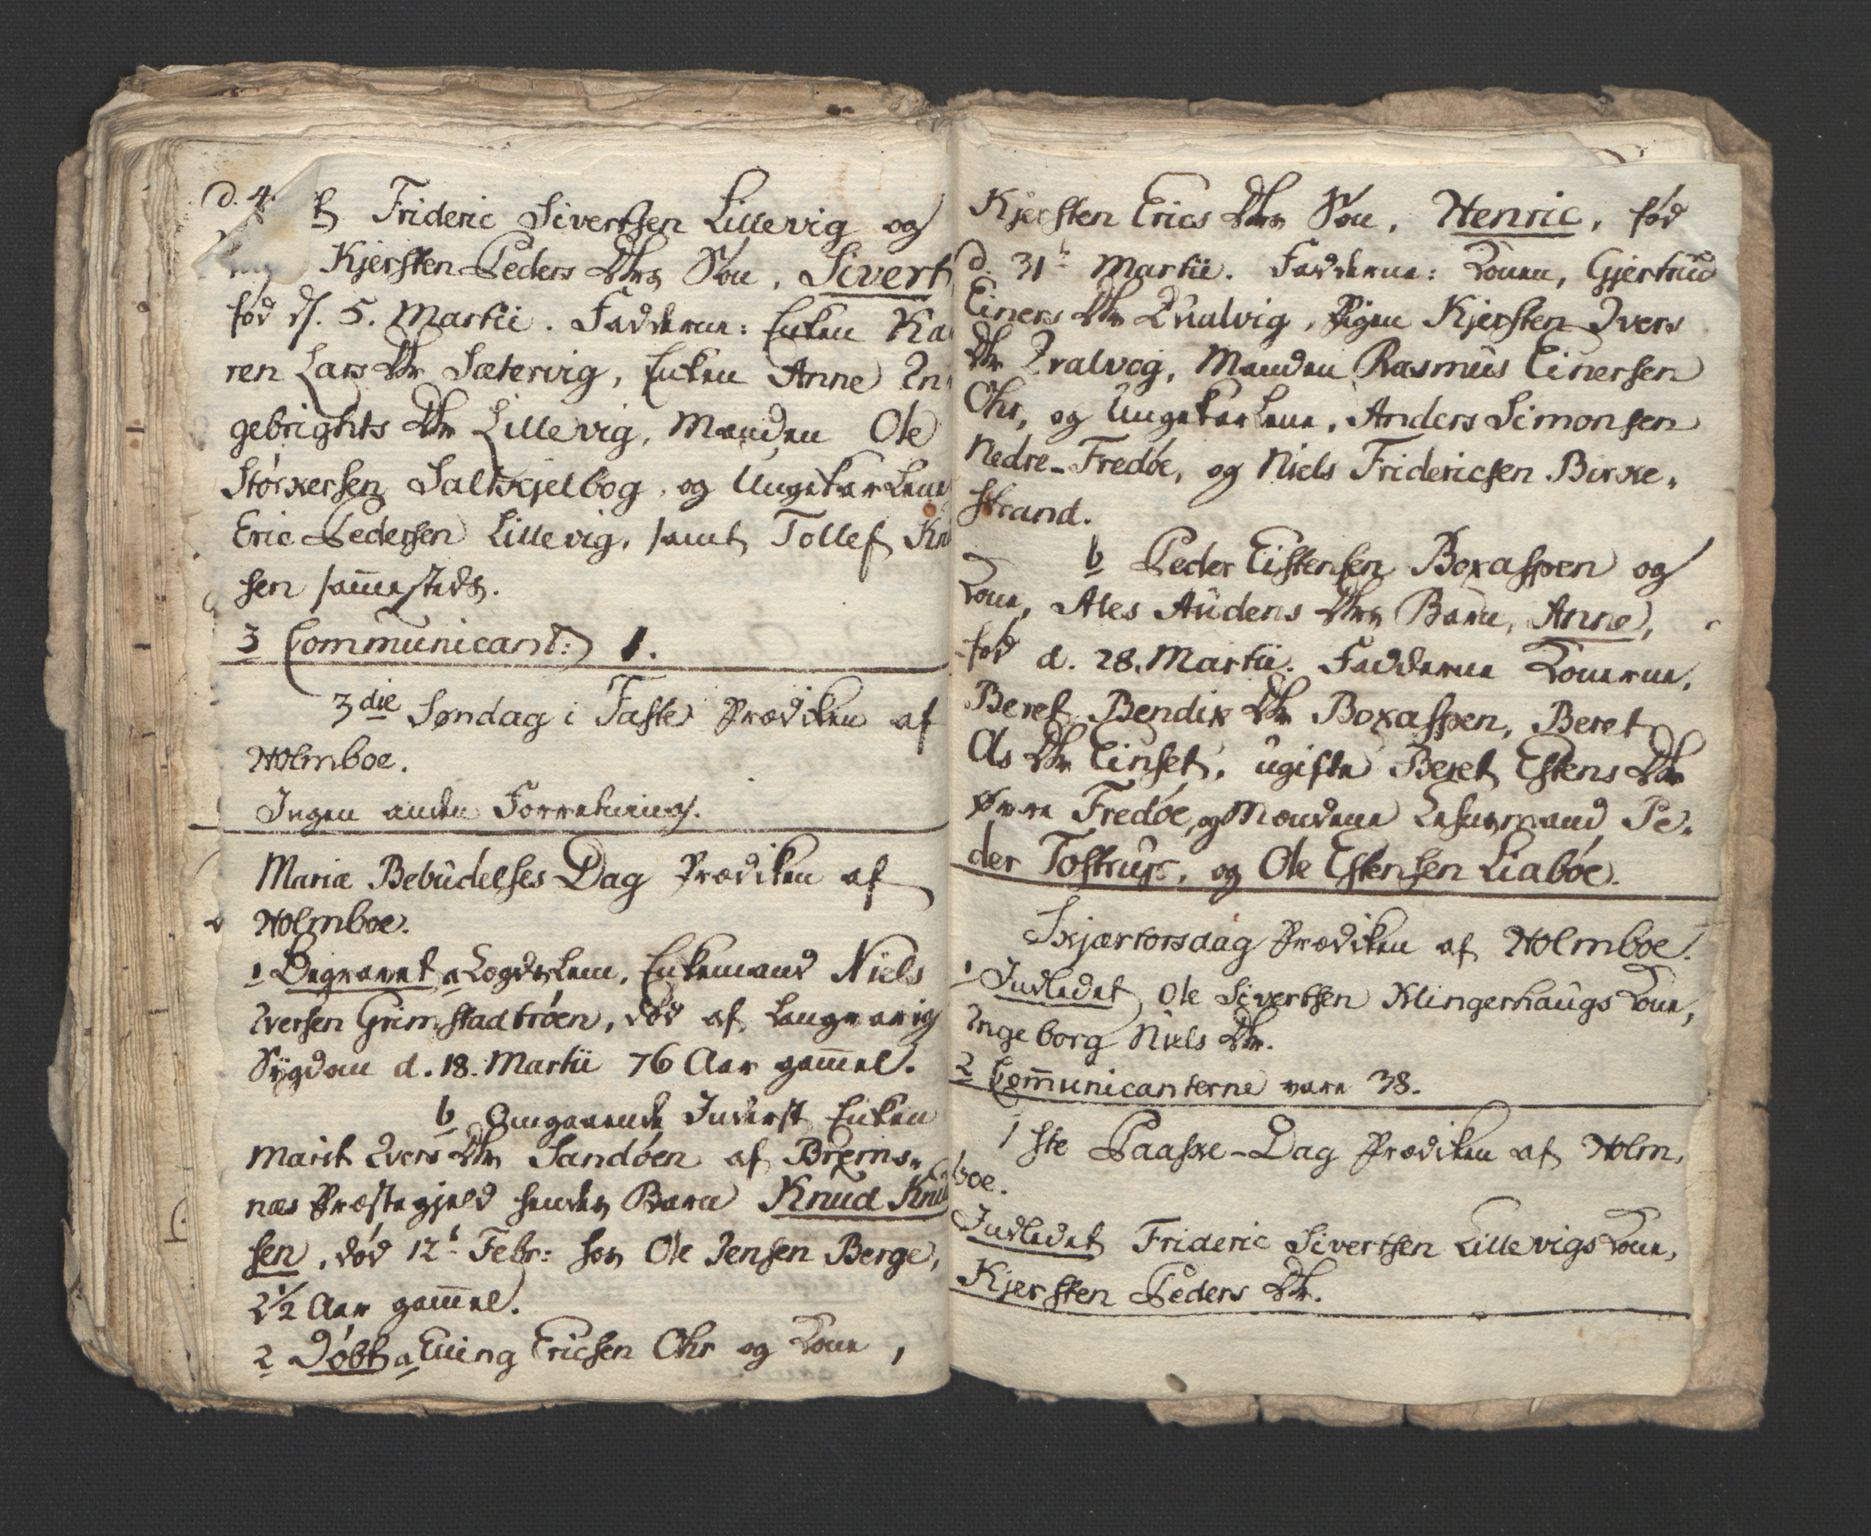 d. 4. b Frideric Sivertsen Lillevig og
Kjersten Peders Dtrs Søn, Sivert
fød d. 5. Martii. Fadderne: Enken Ka
ren Lars Dtr Sætervig, Enken Anne In
gebrights Dtr Lillevig, Manden Ole
Størkersen Saltkjelbog, og Ungekarlene
Eric Pedersen Lillevig, samt Tollef Knu
sen sam̄esteds.
3 Communicant: 1.
3die Søndag i Faste Prædiken af
Holmboe.
Ingen anden Forretning.
Mariæ Bebudelses Dag Prædiken af
Holmboe.
1 Begravet a Logdslem, Enkemand Niels
Iversen Grimstadtrøen, død af langvarig
Sygdom d. 18. Martii 76 Aar gam̄el.
b Omgaaende Inderst Enken
Marit Ivers Dtrs Sandøen af Brems-
næs Præstegjeld hendes Barn Knud Knu
sen, død 12t Febr: hos Ole Jensen Berge,
2½ Aar gam̄el.
2 Døbt a Elling Ericsen Ohr og Kone,
Kjersten Erics Dtrs Søn, Henric, fød
d. 31t Martii. Fadderne: Konen, Gjertrud
Einers Dtr Qualvig, Pigen Kjersten Ivers
Dtr Qvalvog, Manden Rasmus Einersen
Ohr, og Ungekarlene, Anders Simonsen
Nedre-Fredøe, og Niels Fridericsen Birke-
strand.
b Peder Eistensen Boxaspen og
Kone, Ales Audens Dtrs Barn, Anne,
fød d. 28. Martii. Fadderne Konerne,
Beret Bendix Dtr Boxaspen, Beret
Ols Dtr Einset, ugifte Beret Estens Dtr
Øvre Fredøe, og Mændene Lehnsmand Pe-
der Tostrup, og Ole Estensen Liabøe.
Skjærtorsdag Prædiken af Holmboe.
1 Indledet Ole Sivertsen Klingerhaugs Kone,
Ingeborg Niels Dtr.
2 Com̄unicanterne vare 38.
1ste Paaske-Dag Prædiken af Holm-
boe.
Indledet Frideric Sivertsen Lillevigs Kone,
Kjersten Peders Dtr.